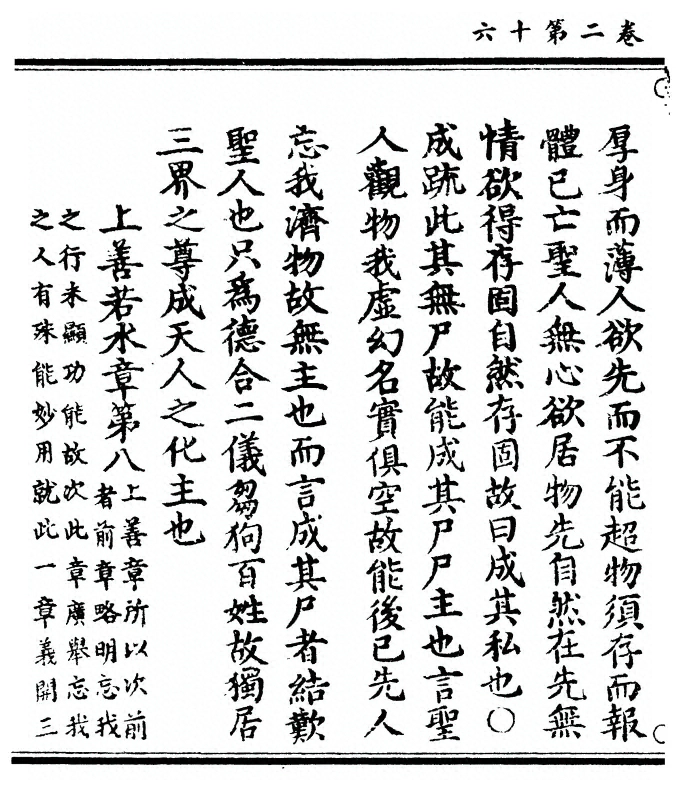 卷二第十六
厚身而薄人欲先而不能超物須存而報
體已亡聖人無心欲居物先自然在先無
情欲得存固自然存固故曰成其私也○
成疏此其無尸故能成其尸尸主也言聖
人觀物我虛幻名實俱空故能後已先人
忘我濟物故無主也而言成其尸者結歎
聖人也只爲德合二儀芻狗百姓故獨居
三界之尊成天人之化主也
上善若水章第八
上善章所以次前
者前章略明忘我
之行未顯功能故次此章廣舉忘我
之人有殊能妙用就此一章義開三